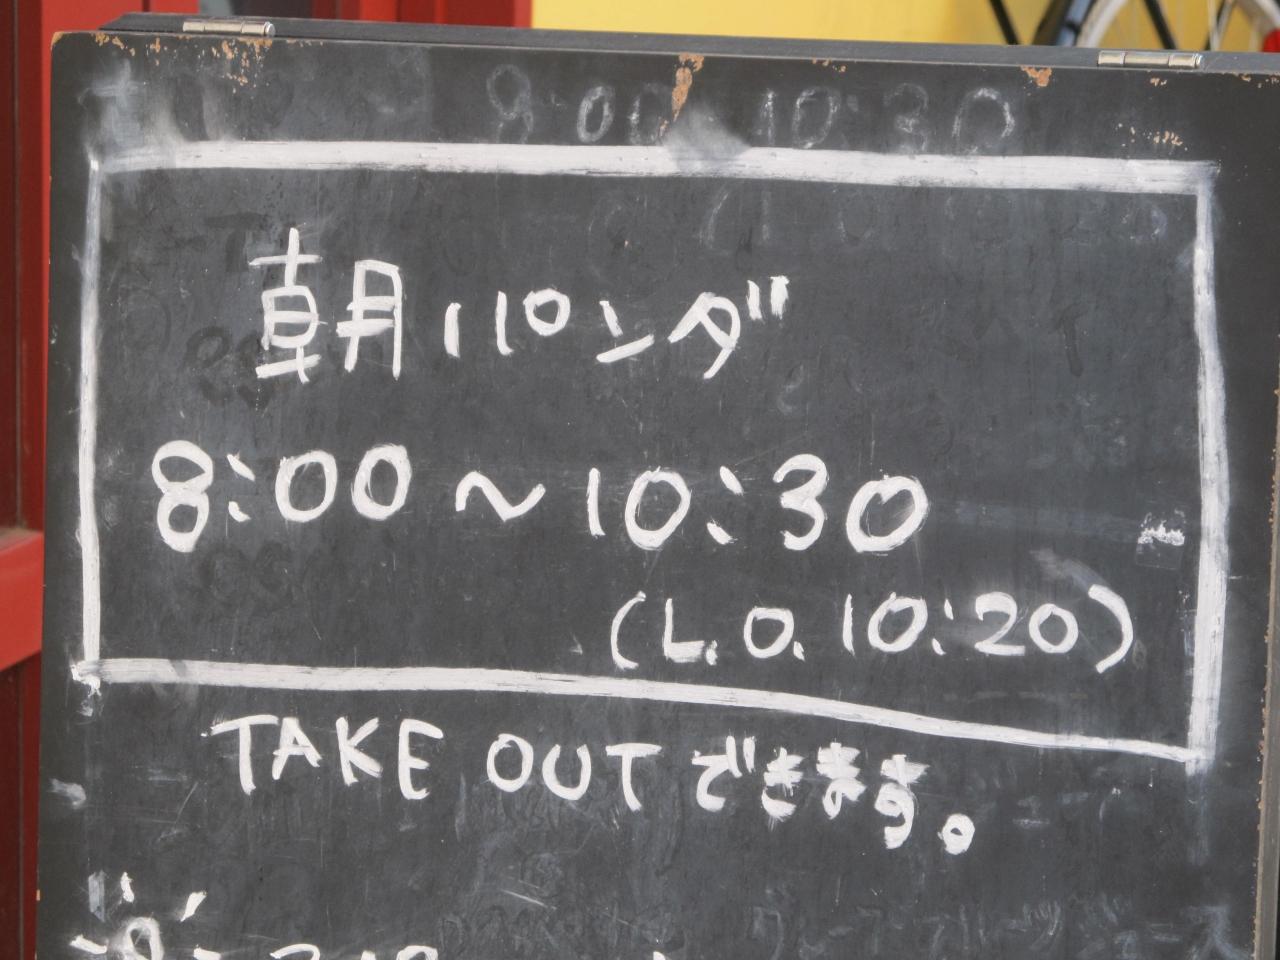 9:00 10:30
朝パンダ
8:00～10:30
(L.O.10:20)
TAKE OUTできます。